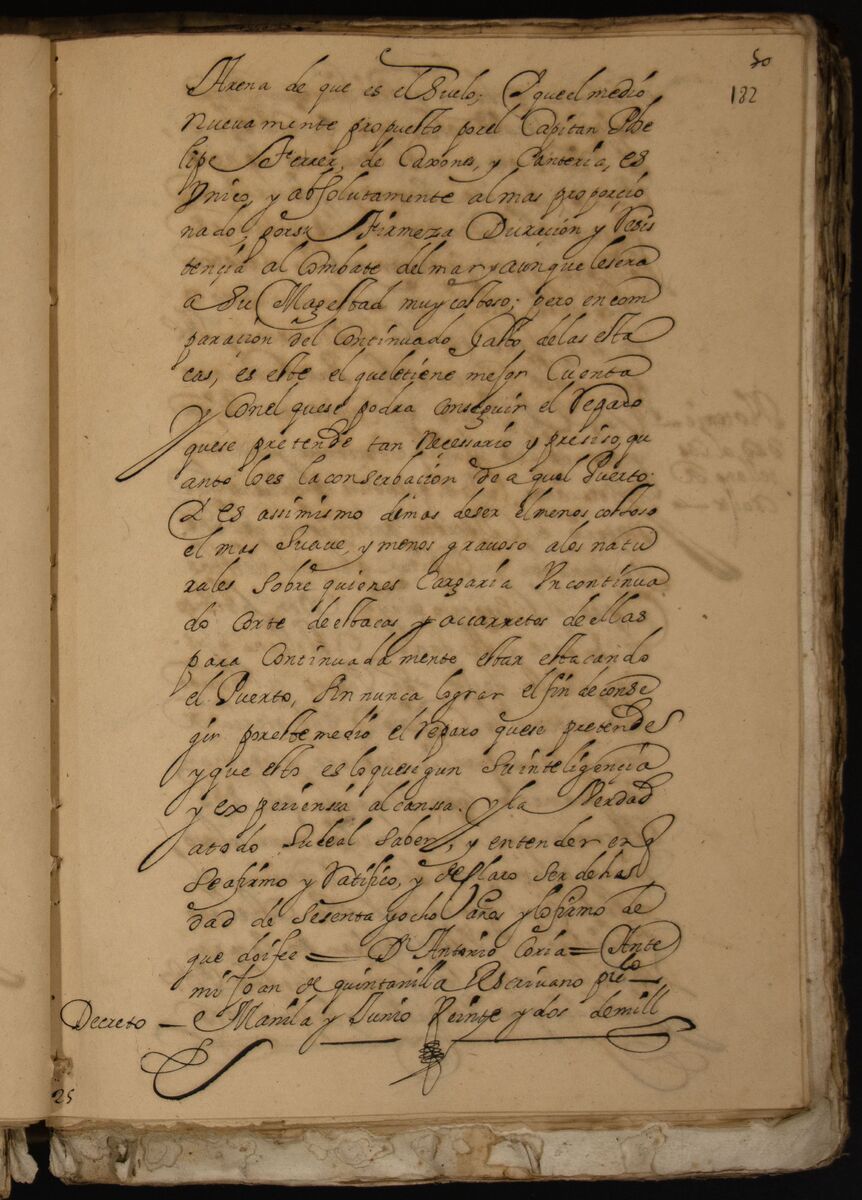 50
182
Arena de que es el Suelo; Y que el medio
nuevamente propuesto por el Capitan Phe
lipe Ferrer, de Caxones, y Canteria, es
Vnico, y absolutamente al mas proporcio
nado, por su firmeza Duracion y Resis
tencia al Combate del mar y aunque le sera
a Su Magestad muy costoso; pero en com
paracion del Continuado Gasto de las esta
cas, es este el que le tiene mejor Cuenta
y Con el que se podra Conseguir el Reparo
que se pretende tan necessario y presiso, qu
anto lo es la conserbacion de a quel Puerto;
Y es assimismo demas de ser el menos costoso
el mas Suave, y menos gravoso a los natu
rales Sobre quienes Cargaria Vn continua
do Corte de estacas y accarretos de ellas
para Continuadamente estar estacando
el Puerto, Sin nunca lograr el fin de conse
gir por este medio el Reparo que se pretende
y que esto es lo que segun Su inteligencia
y experiensia alcanssa. y la Verdad
a todo Su leal Saber, y entender en q̃
Se afirmo y Ratifico, y declaro Ser de he
dad de Sesenta y ocho años y lo firmo de
que doi fee = Dn Antonio Coria = Ante
mi Joan de quintanilla Escrivano puco
Decreto — Manila y Junio Veinte y dos de mill
25